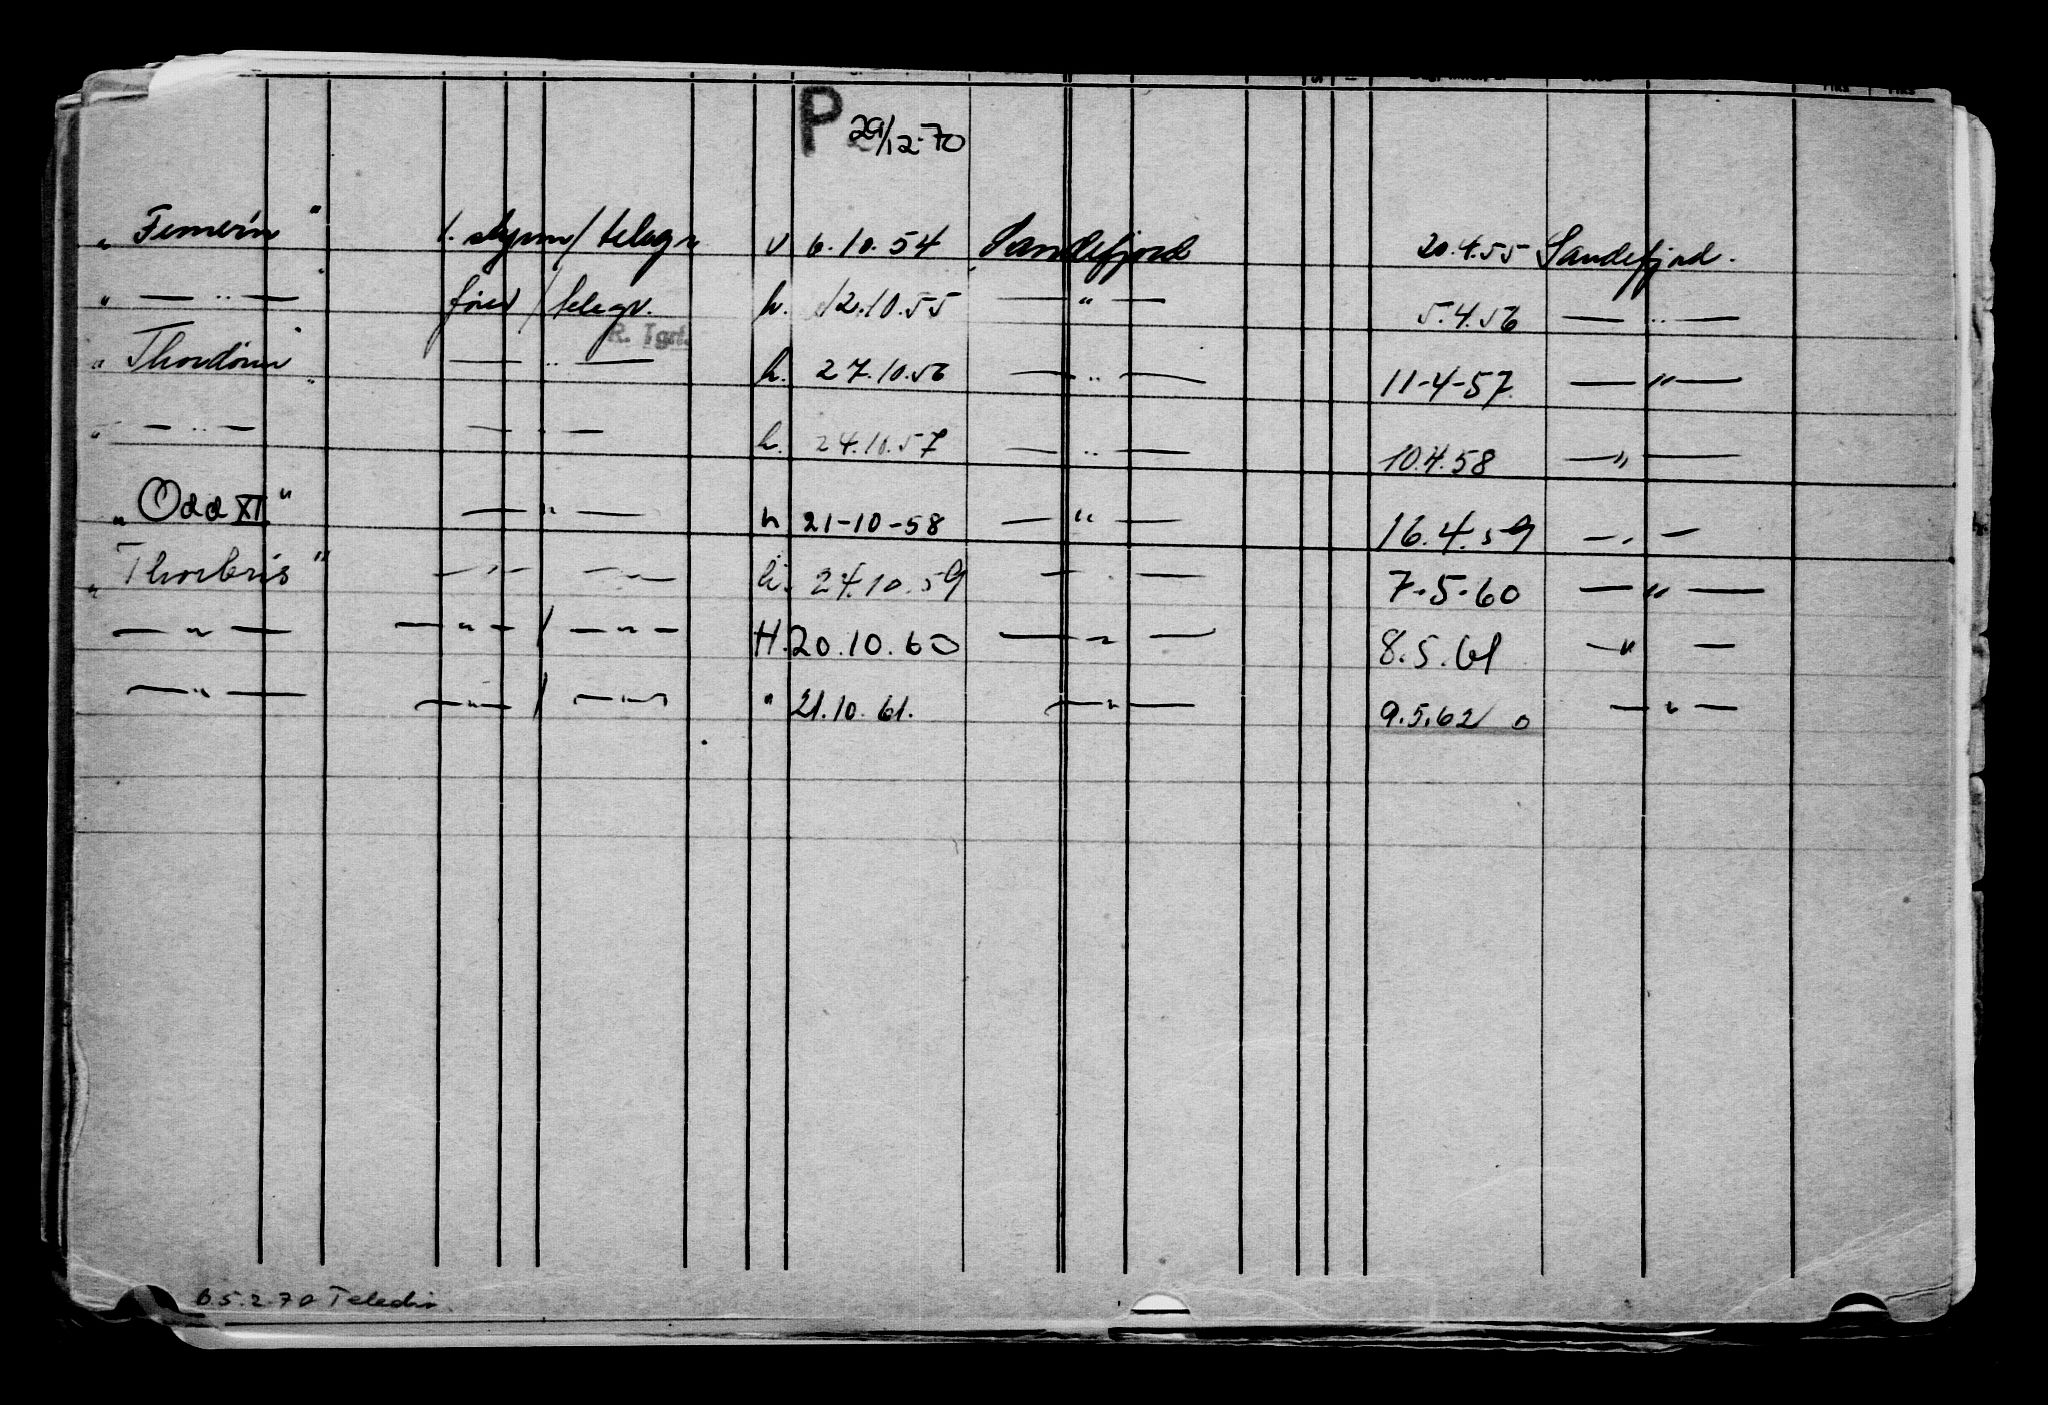 P 29/12-70
„ Femern " 1. styrm / telegr v 6.10.54 Sandefjord 20.4.55 Sandefjord.
„ — „ — / telegr. h. 12.10.55 — " — 5.4.56 — „ —
R. Tgrf.
„ Thordønn " — „ — h. 27.10.56 — „ — 11-4-57 — " —
„ — „ — — „ — h. 24.10.57 — „ — 10.4.58 — " —
„ Odd XI " — " — h 21-10-58 — " — 16.4.59 — „ —
„ Thorbris " — „ — — „ — h. 24.10.59 — „ — 7.5.60 — " —
— " — — " — / — " — H. 20.10.60 — " — 8.5.61 — " —
— " — — " — / — " — " 21.10.61. — " — 9.5.62 o — " —
5.2.70